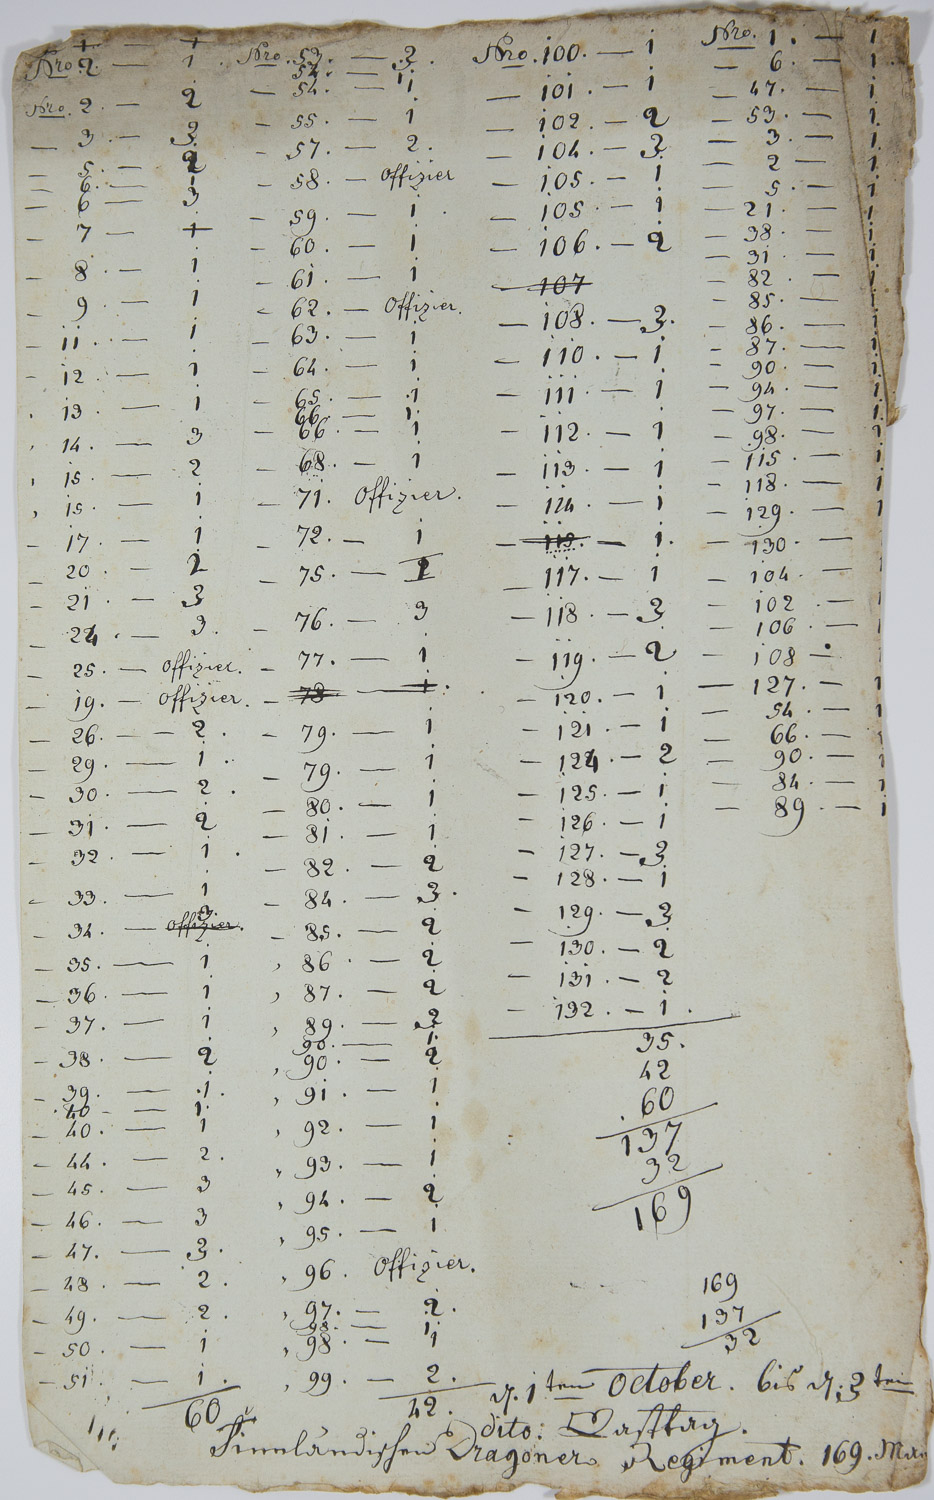 1 — 1
Nro. 2 — 1.
Nro. 2 — 2
— 3 — 3
— 5 — 2
— 6 — 1
— 6 — 3
— 7 — 1
— 8 — 1
— 9 — 1
— 11 — 1
— 12 — 1
13 — 1
14. — 3
15 — 2
15 — 1
— 17 — 1
— 20 — 2
— 21 — 3
— 24 — 3.
— 25 — Offizier.
— 19. — Offizier.
— 26. — 2.
— 29 — 1.
— 30 — 2.
— 31. — 2
— 32 — 1.
— 33. — 1
— 34. — Offizier. 3.
— 35. — 1
— 36 — 1
— 37. — 1
— 38 — 2
— 39. — 1.
40 — 1.
— 40. — 1
— 44. — 2.
— 45. — 3
— 46. — 3
— 47. — 3.
— 48. — 2.
— 49. — 2.
— 50. — 1
— 51. — 1.
60
Nro. 53. — 3.
54. — 1.
— 54. — 1
— 55. — 1
— 57. — 2.
— 58 — Offizier
— 59. — 1.
— 60. — 1
— 61. — 1
— 62. — Offizier.
— 63. — 1
— 64. — 1
— 65. — 1
66. — 1.
— 66. — 1
— 68. — 1
— 71. Offizier.
— 72. — 1
— 75. — 2
— 76. — 3
— 77. — 1
— 78 — 1.
— 79. — 1
— 79. — 1
— 80. — 1
— 81. — 1
— 82. — 2
— 84. — 3.
— 85. — 2
86. — 2
87. — 2
89. — 3
90. — 1.
90. — 2
91. — 1
92. — 1
93. — 1
94. — 2
95. — 1
96. Offizier.
97. — 2.
98. — 1
98. — 1
99. — 2.
42.
Nro. 100. — 1
— 101. — 1
— 102. — 2
— 104. — 3
— 105. — 1
— 105 — 1
— 106. — 2
— 107
— 108. — 3.
— 110. — 1
— 111. — 1
— 112. — 1
— 113. — 1
— 114. — 1
— 115. — 1.
— 117. — 1
— 118. — 3
— 119. — 2
— 120. — 1
— 121. — 1
— 124. — 2
— 125. — 1
— 126. — 1
— 127. — 3
— 128. — 1
— 129. — 3
— 130. — 2
— 131. — 2
— 132. — 1.
35.
42
60
137
32
169
Nro. 1. — 1
— 6. — 1.
— 47. — 1
— 53. — 1
— 3. — 1
— 2 — 1
— 5. — 1
— 21. — 1
— 38. — 1
— 31 — 1
— 82 — 1
— 85. — 1
— 86. — 1
— 87. — 1
— 90. — 1
— 94. — 1
— 97. — 1
— 98. — 1
— 115 — 1
— 118. — 1
— 129. — 1
— 130 — 1
— 104. — 1
— 102 — 1
— 106 — 1
— 108 —
— 127. — 1
— 54. — 1
— 66. — 1
— 90. — 1
— 84. — 1
— 89. — 1
169
137
32
d. 1ten October. bis d. 3ten
dito: Rasttag.
Finnländischen Dragoner Regiment. 169. Man